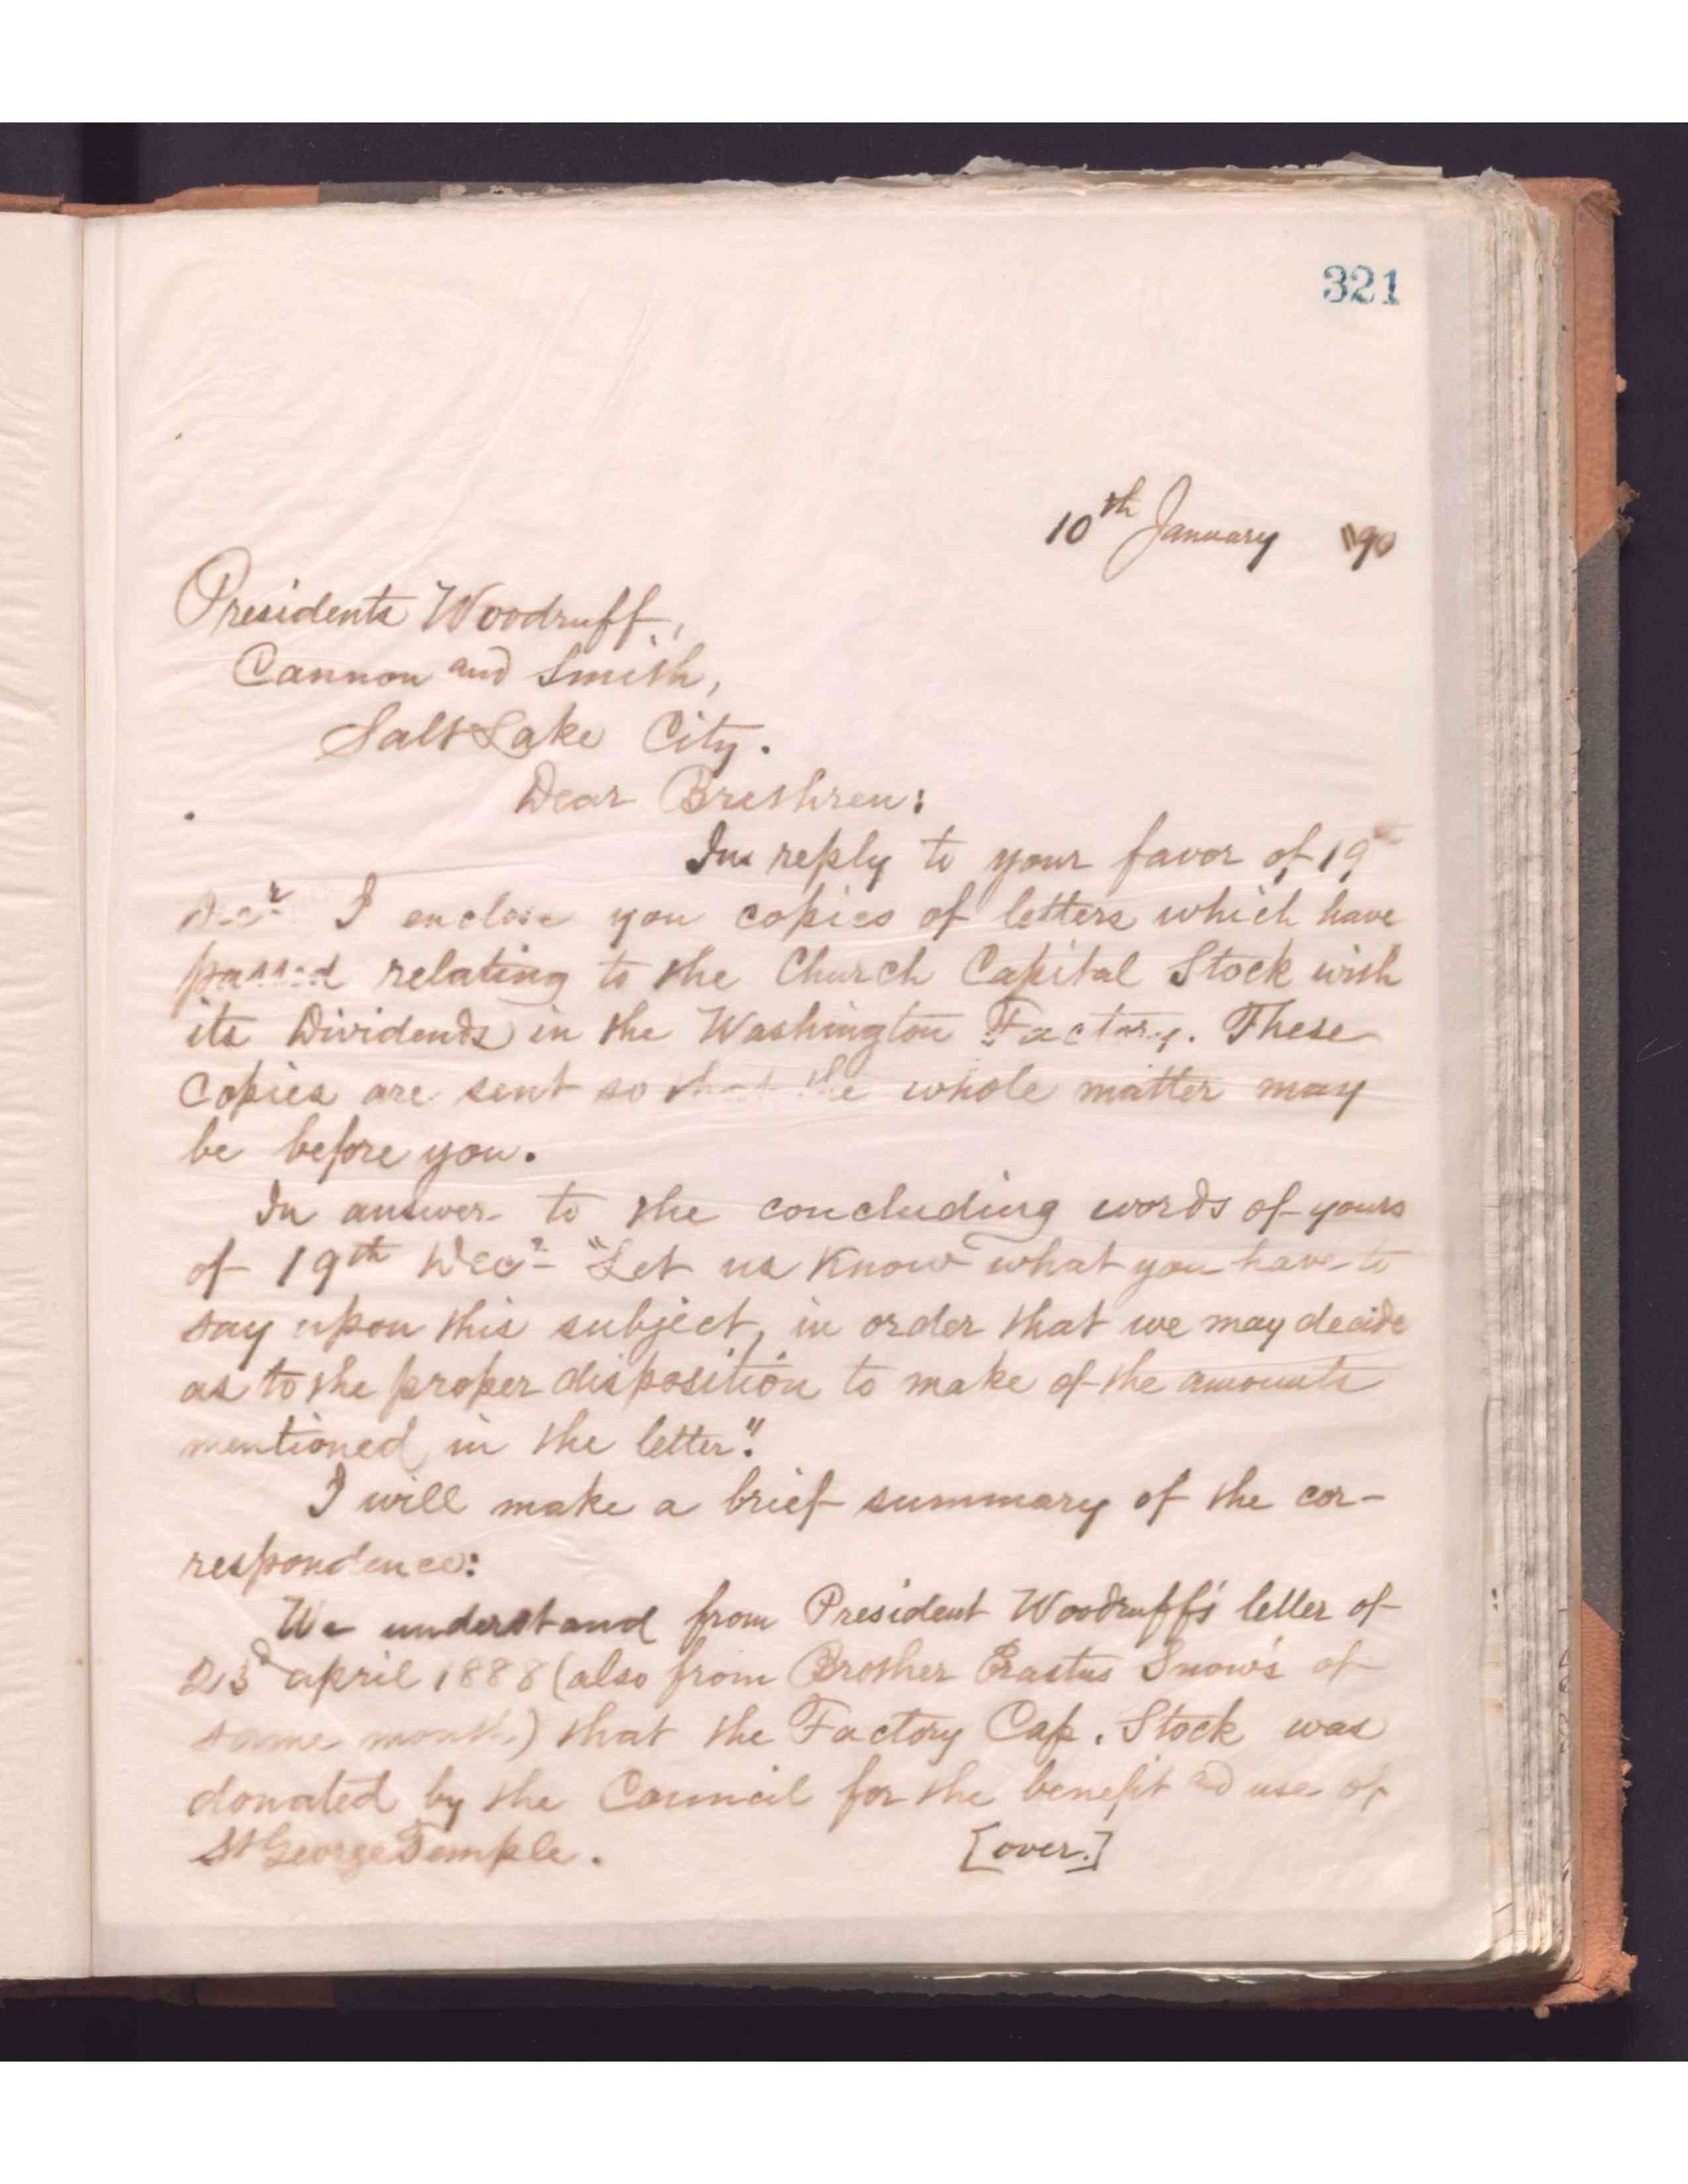 321
10th January '90
Presidents Woodruff,
Cannon and Smith,
Salt Lake City.
Dear Brethren:
In reply to your favor of 19th
Decr I enclose you copies of letters which have
passed relating to the Church Capital Stock with
its Dividends in the Washington Factory. These
Copies are sent so that the whole matter may
be before you.
In answer to the concluding words of yours
of 19th Decr - "Let us know what you have to
say upon this subject, in order that we may decide
as to the proper disposition to make of the amounts
mentioned in the letter."
I will make a brief summary of the cor-
respondence:
We understand from President Woodruff's letter of
23d April 1888 (also from Brother Erastus Snow's of
same month) that the Factory Cap. Stock was
donated by the Council for the benefit and use of
St George Temple. [over.]